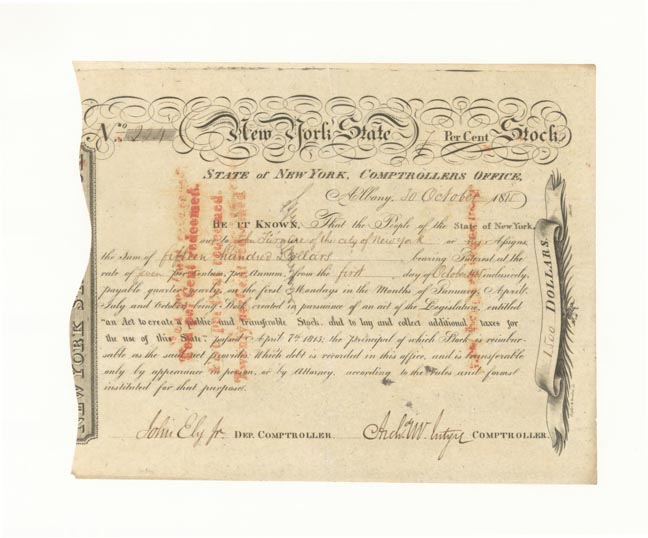 No
New York State
7 Per Cent Stock
STATE of NEW YORK, COMPTROLLERS OFFICE,
Albany, 30 October 1815
BE IT KNOWN, That the People of the State of New York,
owe to John of the city of New York or his Assigns,
the Sum of fifteen Hundred Dollars bearing Interest at the
rate of seven per centum, per Annum, from the first day of October inclusively,
payable quarter yearly, on the first Mondays in the Months of January, April,
July and October being Stock created in pursuance of an act of the Legislature, entitled
"an Act to create a public and transferable Stock, and to lay and collect additional taxes for
the use of this State," passed April 7th 1815; the principal of which Stock is reimbur-
sable as the said act provides. Which debt is recorded in this office, and is transferable
only by appearance in person, or by Attorney, according to the rules and forms
instituted for that purpose.
John Ely Jr. DEP. COMPTROLLER
Archd. McIntyre COMPTROLLER
1500 DOLLARS.
NEW YORK SE
Per Cent redeemed.